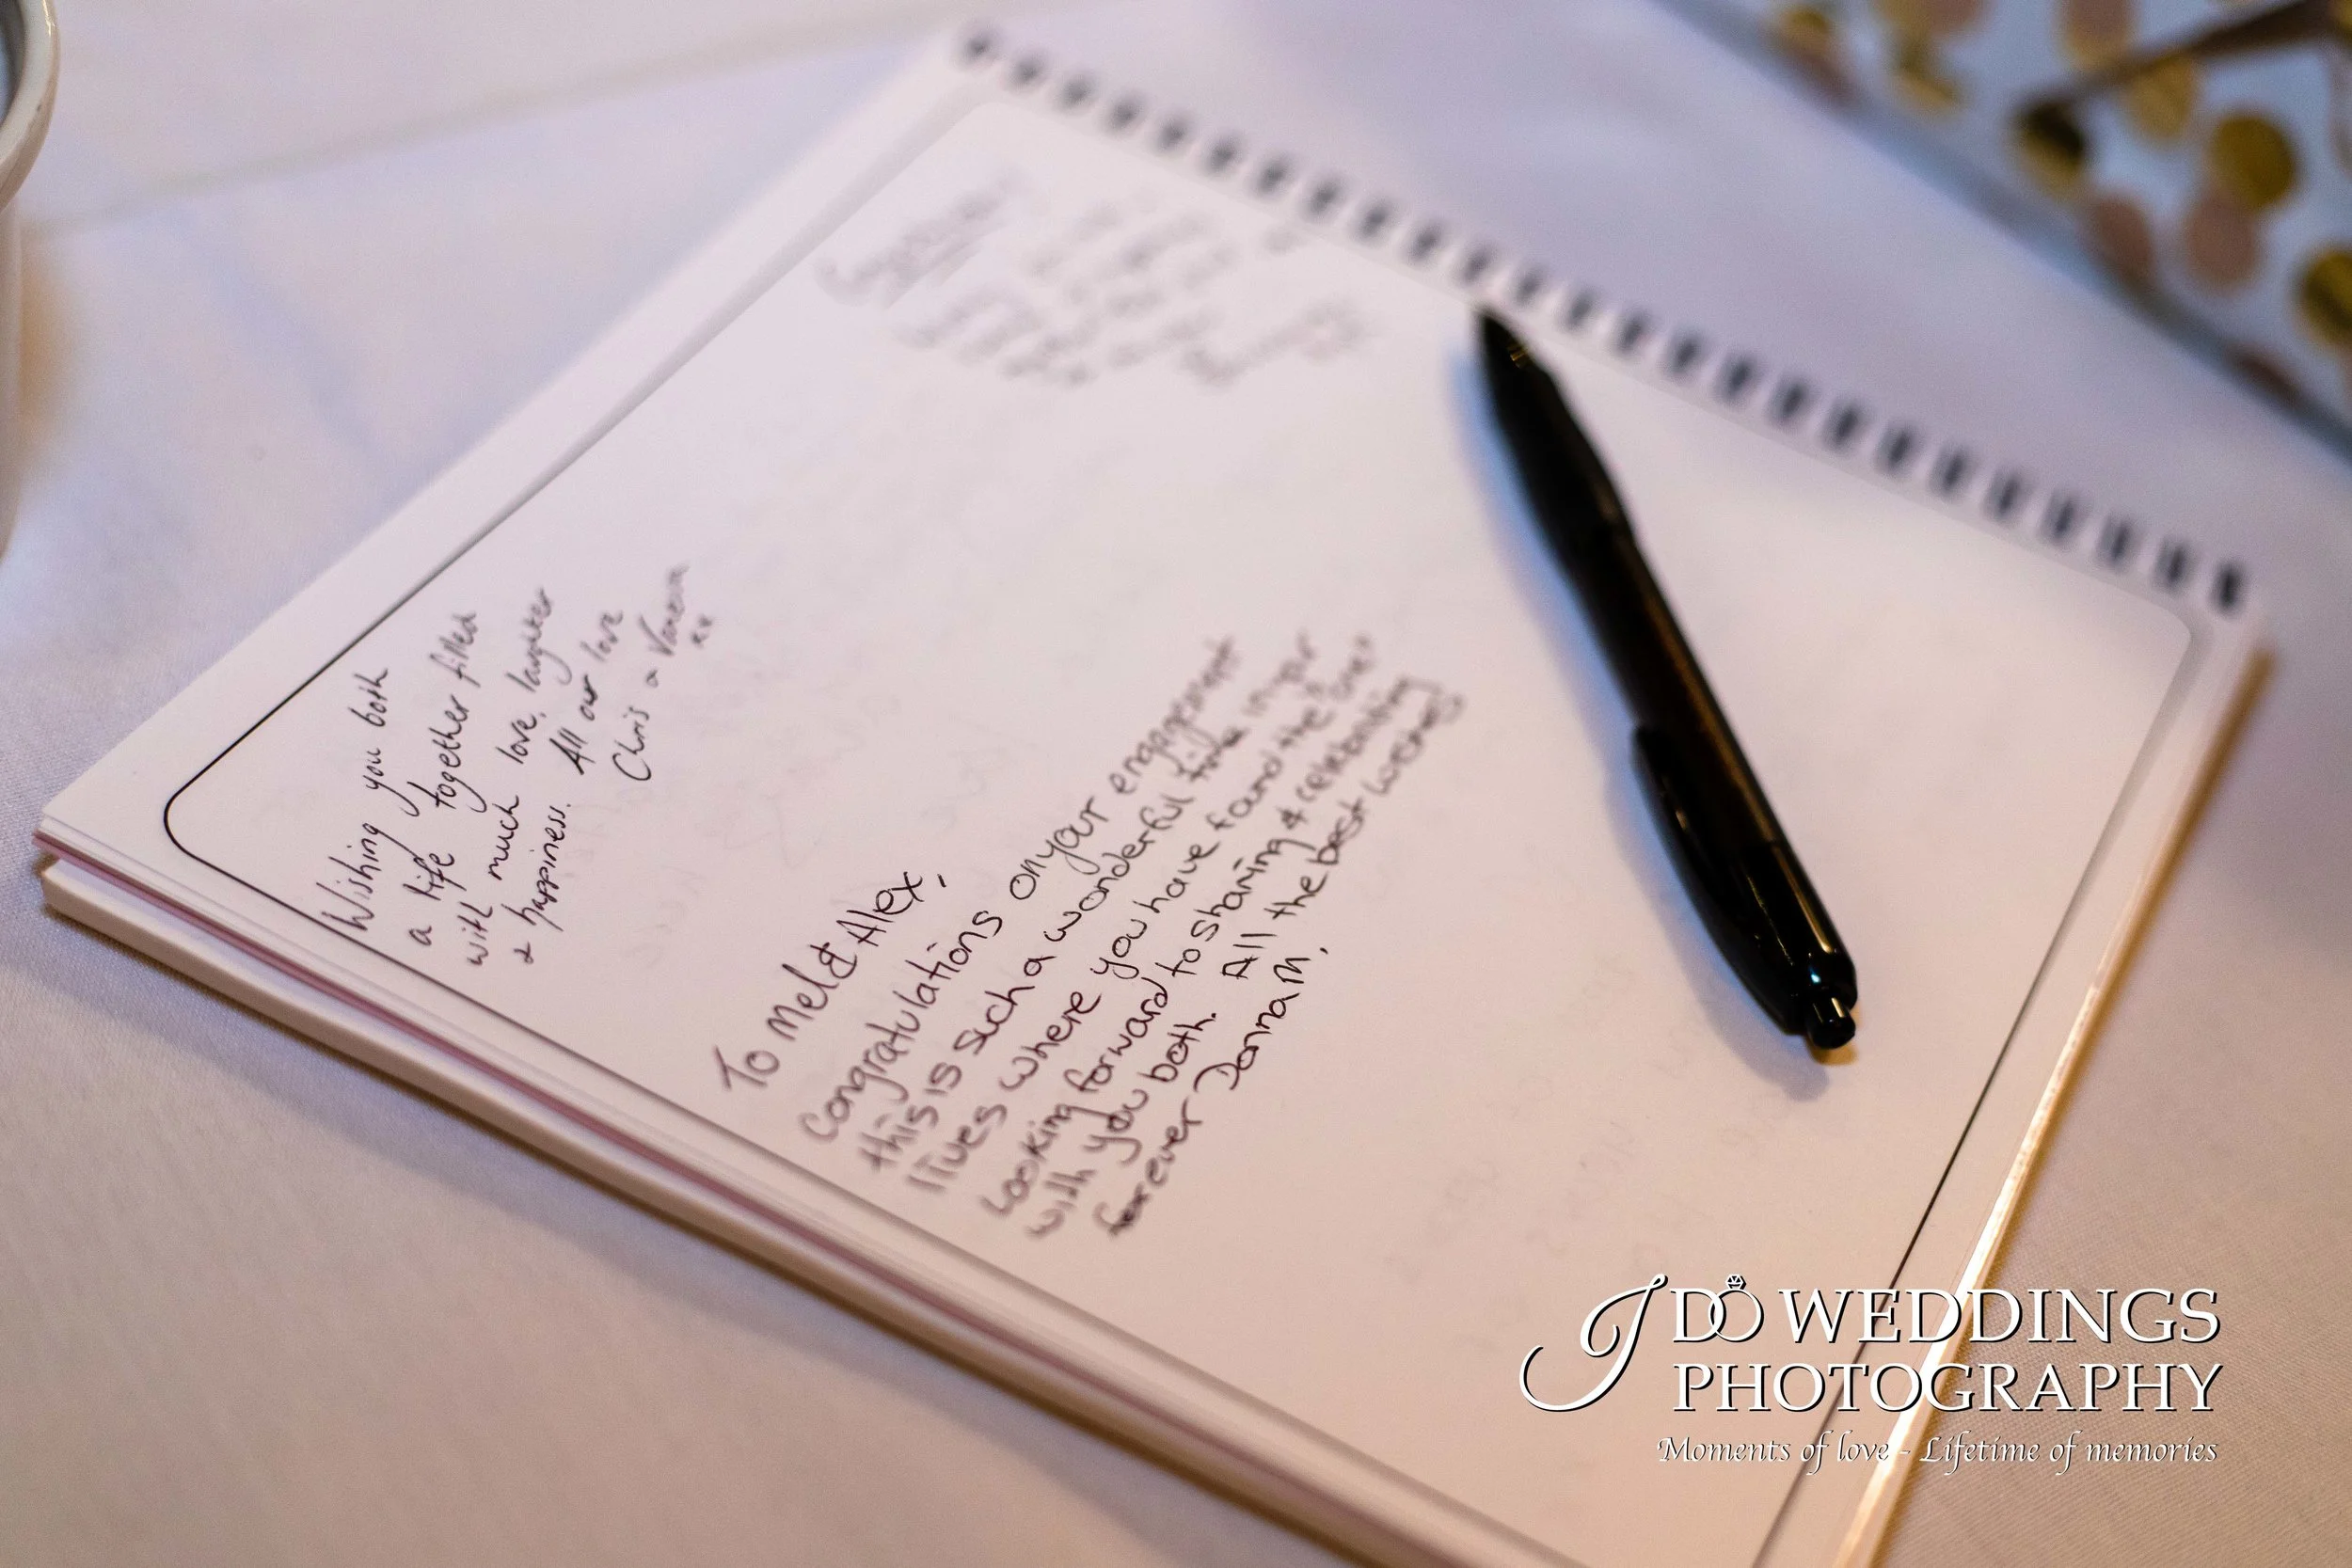 Wishing you both
a life together filled
with much love, laughter
& happiness. All our love
Chris & Vanessa
xx
To Mel & Alex,
Congratulations on your engagement
this is such a wonderful time in your
lives where you have found the "one"
Looking forward to sharing & celebrating
with you both. All the best wishes
forever Donna M.
I DO WEDDINGS
PHOTOGRAPHY
Moments of love - Lifetime of memories